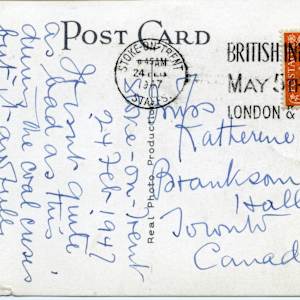 POST CARD
STOKE-ON-TRENT
8.45 AM
24 FEB
1947
STAFFS.
BRITISH IN
MAY 5
LONDON &
Real Photo Produc
Stoke-on-Trent
24 Feb. 1947
It's not quite
as bad as this
during the coal crisis
but it's
Katherine
Branksome
Hall
Toronto
Canada